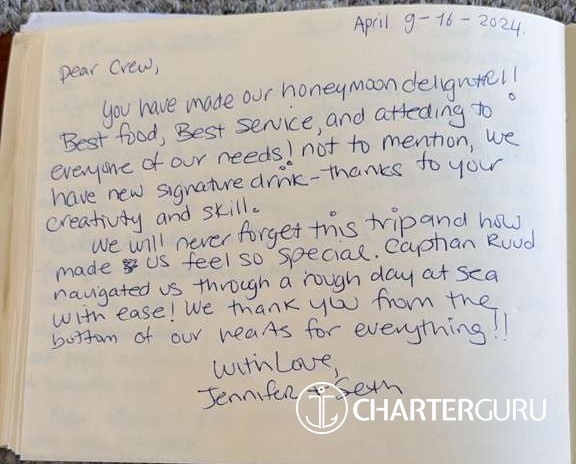 April 9-16-2024.
Dear Crew,
You have made our honeymoon delightful!
Best food, Best service, and atteding to
everyone of our needs! not to mention, we
have new signature drink - thanks to your
creativity and skill.
We will never forget this trip and how
made us feel so special. Capthan Ruud
navigated us through a rough day at sea
with ease! We thank you from the
bottom of our hearts for everything!!
With Love,
Jennifer + Seth
CHARTERGURU